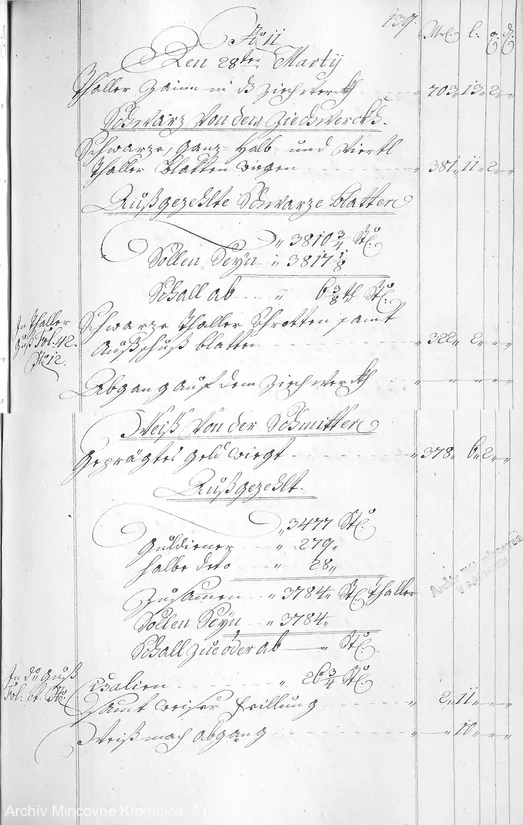 139.
No 11
Mr. l. q. d.
Den 28ten Martij
Thaller Zainn in dz Ziechwerckh „ 703„ 13„ 2„ „
Schwarz Von dem Ziechwerckh.
Schwarze, Ganz- Halb- und Viertl
Thaller Blatten wigen „ 381„ 11„ 2„ „
Außgezehlte Schwarze Blatten
„ 3810 3/4 Stu.
Sollen Seyn „ 3817 1/8
Schall ab „ 6 3/8 tl Stu.
In Thaller
Guß Fol. 42.
No 12.
Schwarze Thaller Schrotten samt
Außschuß blatten „ 322„ 2„ „ „
Abgang auf dem Ziechwerckh „ „ „ „
Weiß Von der Schmitten
Geprägtes Geld wiegt „ 378„ 6„ 2„ „
Außgezehlt.
„ 3477 Stu.
Guldiener „ 279„
halbe deto „ 28„
Zusamen „ 3784„ Stu Thaller
Sollen Seyn „ 3784„
Schall zue oder ab „ Stu.
In dn Guß
Fol. et No.
Cisalien „ 26 3/4 Stu.
samt weiser Feillung „ 2„ 11„ „ „
Weißmach abgang „ „ 10„ „ „
Archív Mincovne Kremnica, š.p.